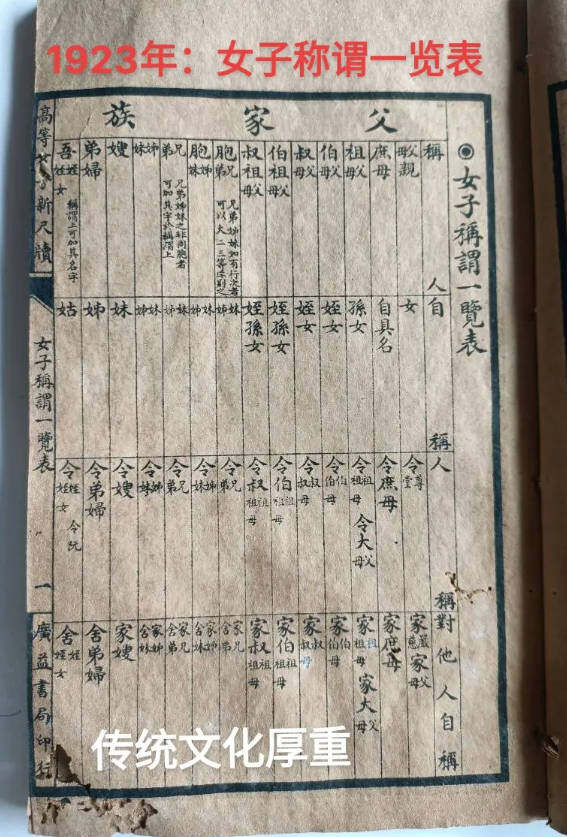 1923年：女子称谓一览表
父家族
◉女子稱謂一覽表
稱人 自稱 人稱 對他人自稱
父母親 女 令尊 家嚴慈 家父母
庶母 自具名 令庶母 家庶母
祖父母 孫女 令祖祖母 令大父母 家祖祖母 家大父母
伯父母 姪女 令伯伯母 家伯伯母
叔父母 姪女 令叔叔母 家叔叔母
伯祖父母 姪孫女 令伯祖祖母 家伯祖祖母
叔祖父母 姪孫女 令叔祖祖母 家叔祖祖母
胞兄弟 兄弟姊妹如有行次者可以大二三等字別之 姊妹 令兄弟 家兄舍弟
胞姊妹 姊妹 令姊妹 家姊舍妹
兄弟 兄弟姊妹之非同胞者可加其字於稱謂上 姊妹 令兄弟 家兄舍弟
姊妹 姊妹 令姊妹 家姊舍妹
嫂 妹 令嫂 家嫂
弟婦 姊 令弟婦 舍弟婦
吾姪姪女 稱謂上可加其名字 姑 令姪姪女 令阮 舍姪姪女
高等女子新尺牘 女子稱謂一覽表 一 廣益書局印行
传统文化厚重